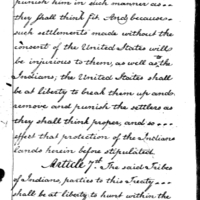 punish him in such manner as—
they shall think fit And because—
such settlements made without the
consent of the United States will
be injurious to them, as well as the
Indians, the United States shall
be at liberty to break them up and
remove and punish the settlers as
they shall think proper, and so—
effect that protection of the Indians
lands herein before stipulated.
Article 7th. The said Tribes
of Indians, parties to this Treaty—
shall be at liberty to hunt within the